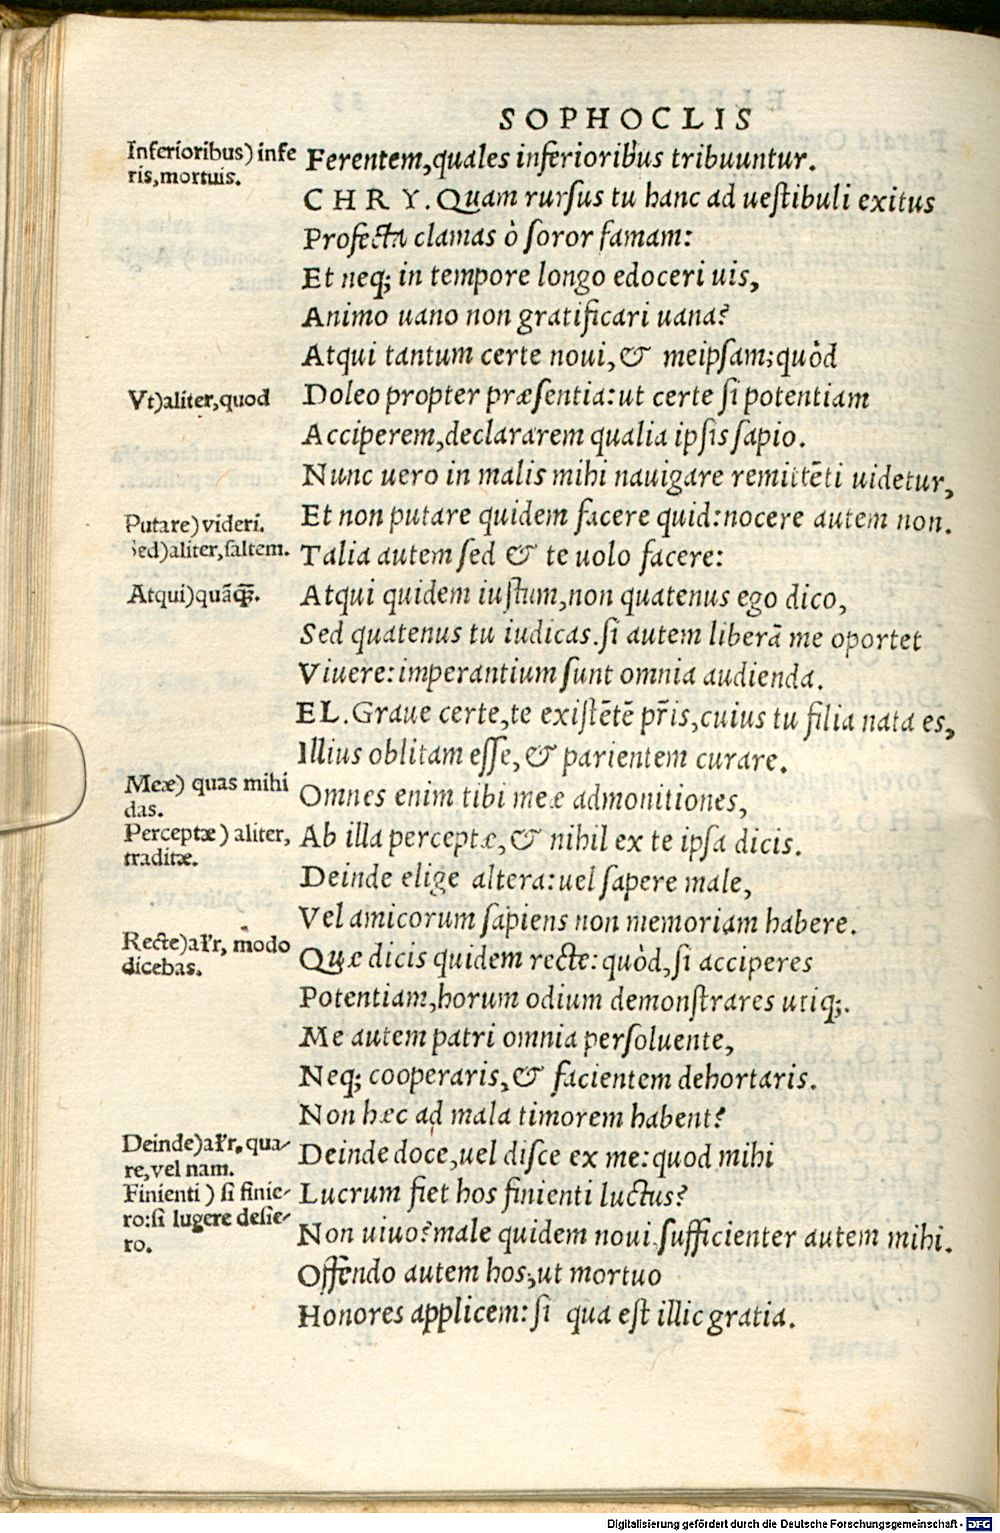 SOPHOCLIS
Inferioribus) infe
ris, mortuis.
Ferentem, quales inferioribus tribuuntur.
CHRY. Quam rursus tu hanc ad uestibuli exitus
Profecta clamas ò soror famam:
Et neq; in tempore longo edoceri uis,
Animo uano non gratificari uana?
Atqui tantum certe noui, & meipsam; quòd
Vt) aliter, quod
Doleo propter præsentia: ut certe si potentiam
Acciperem, declararem qualia ipsis sapio.
Nunc uero in malis mihi nauigare remittēti uidetur,
Putare) videri.
Et non putare quidem facere quid: nocere autem non.
Sed) aliter, saltem.
Talia autem sed & te uolo facere:
Atqui) quāq̄.
Atqui quidem iustum, non quatenus ego dico,
Sed quatenus tu iudicas. si autem liberā me oportet
Viuere: imperantium sunt omnia audienda.
EL. Graue certe, te existētē pr̄is, cuius tu filia nata es,
Illius oblitam esse, & parientem curare.
Meæ) quas mihi
das.
Omnes enim tibi meæ admonitiones,
Perceptæ) aliter,
traditæ.
Ab illa perceptæ, & nihil ex te ipsa dicis.
Deinde elige altera: uel sapere male,
Vel amicorum sapiens non memoriam habere.
Recte) al'r, modo
dicebas.
Quæ dicis quidem recte: quòd, si acciperes
Potentiam, horum odium demonstrares utiq;.
Me autem patri omnia persoluente,
Neq; cooperaris, & facientem dehortaris.
Non hæc ad mala timorem habent?
Deinde) al'r, qua-
re, vel nam.
Deinde doce, uel disce ex me: quod mihi
Finienti) si finie-
ro: si lugere desie-
ro.
Lucrum fiet hos finienti luctus?
Non uiuo? male quidem noui. sufficienter autem mihi.
Offendo autem hos, ut mortuo
Honores applicem: si qua est illic gratia.
Digitalisierung gefördert durch die Deutsche Forschungsgemeinschaft - DFG